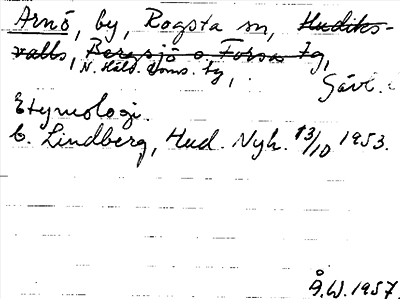 Arnö, by, Rogsta sn, Hudiks-
valls, Bergsjö o. Forsa tg,
N. Häls. Doms. tg,
Gävl.
Etymologi.
C. Lindberg, Hud. Nyh. 13/10 1953.
Å.W. 1957.